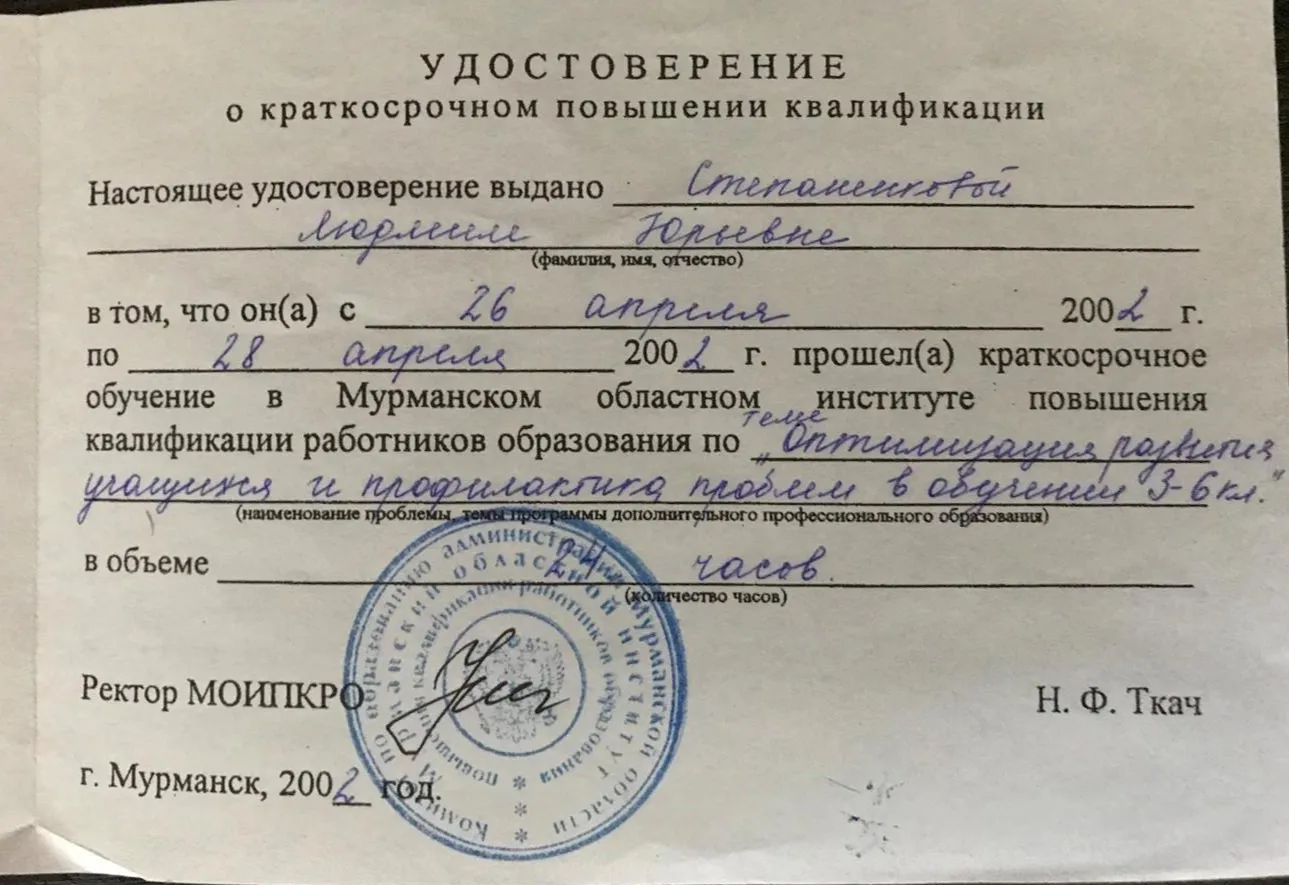 УДОСТОВЕРЕНИЕ
о краткосрочном повышении квалификации
Настоящее удостоверение выдано Степаненковой
Людмиле Юрьевне
(фамилия, имя, отчество)
в том, что он(а) с 26 апреля 2002 г.
по 28 апреля 2002 г. прошел(а) краткосрочное
обучение в Мурманском областном институте повышения
теме
квалификации работников образования по „Оптимизация развития
учащихся и профилактика проблем в обучении 3-6 кл."
(наименование проблемы, темы программы дополнительного профессионального образования)
в объеме 24 часов.
(количество часов)
Ректор МОИПКРО
Н. Ф. Ткач
г. Мурманск, 2002 год.
Комитет по образованию администрации Мурманской области
Мурманский областной институт
повышения квалификации работников образования